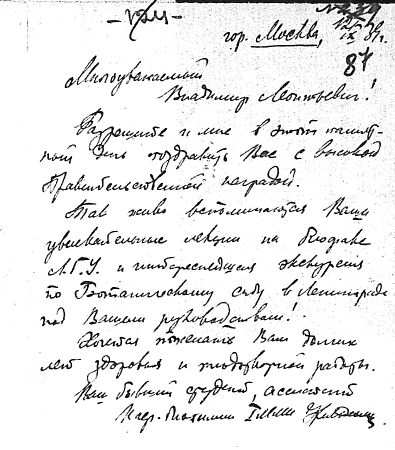 гор. Москва,
87
Многоуважаемый
Владимир Леонтьевич!
Разрешите и мне в этот памят-
ный день поздравить Вас с высокой
Правительственной наградой.
Так живо вспоминаются Ваши
увлекательные лекции на биофаке
Л.Г.У. и интереснейшая экскурсия
по Ботаническому саду в Ленинграде
под Вашим руководством!
Хочется пожелать Вам долгих
лет здоровья и плодотворной работы.
Ваш бывший студент, ассистент